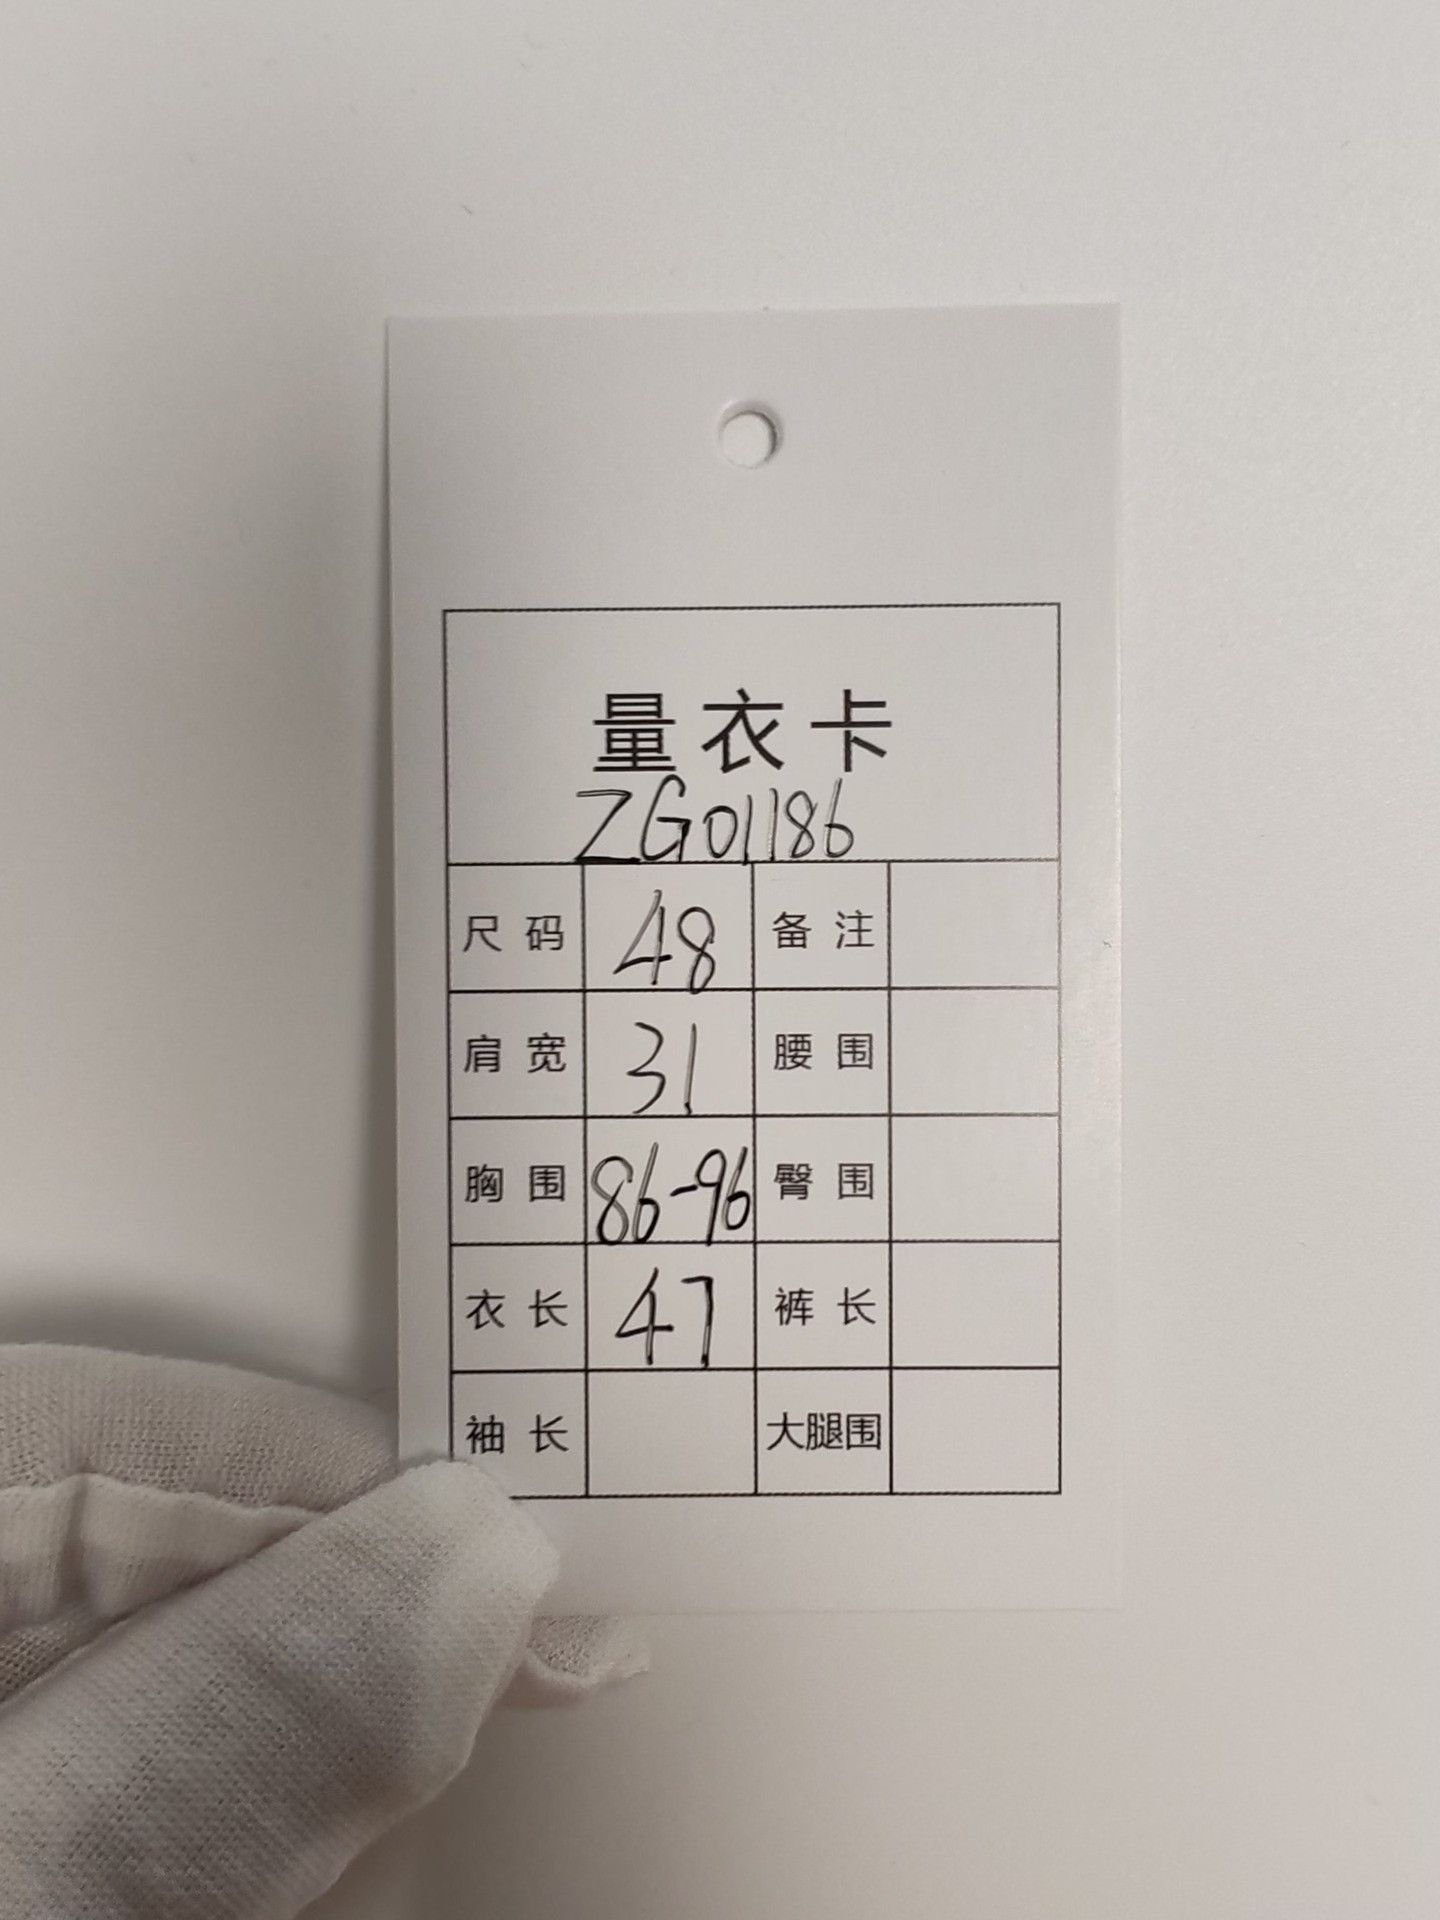 量衣卡
ZG01186
尺码 48 备注
肩宽 31 腰围
胸围 86-96 臀围
衣长 47 裤长
袖长 大腿围